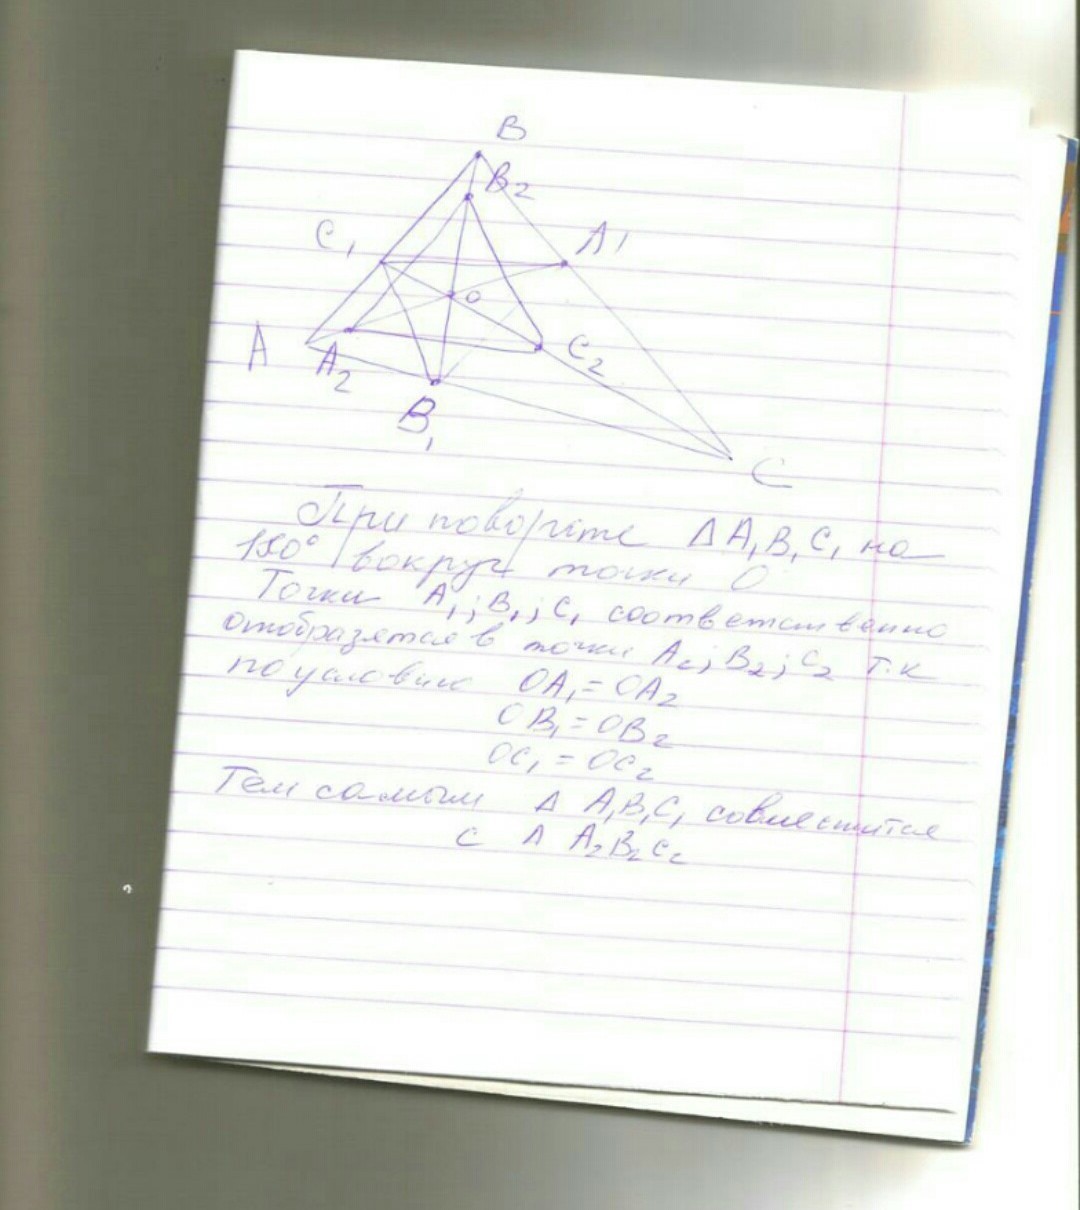 B
B2
C1
A1
O
A
A2
C2
B1
C
При повороте Δ A1B1C1 на
180° вокруг точки O
Точки A1; B1; C1 соответственно
отобразятся в точки A2; B2; C2 т.к
по условию OA1 = OA2
OB1 = OB2
OC1 = OC2
Тем самым Δ A1B1C1 совместится
с Δ A2B2C2